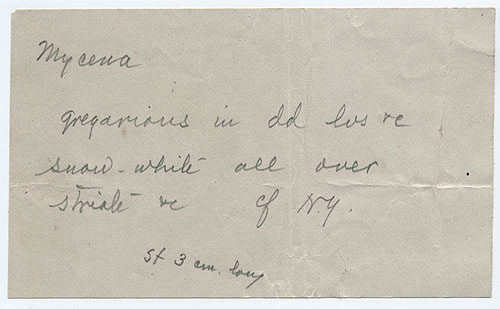 Mycena
gregarious in dd lvs &c
snow-white all over
striate &c cf N.Y.
St 3 cm. long